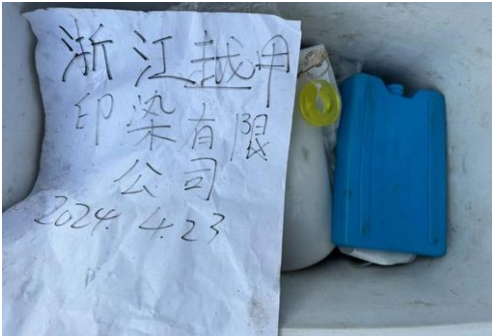 浙江越甲
印染有限
公司
2024.4.23